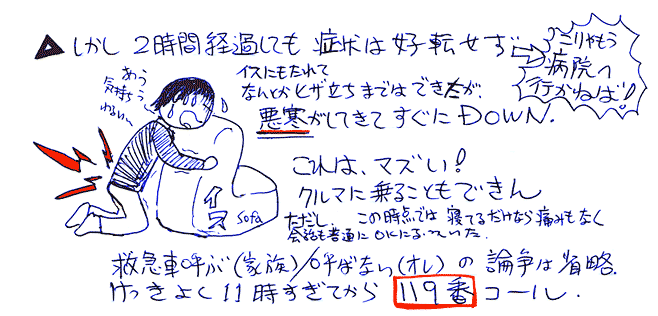 ▲しかし 2時間経過しても 症状は好転せず
⇒こりゃもう
病院へ
行かねば!
あう
気持ち
わるい〜
イスにもたれて
なんとかヒザ立ちまではできたが、
悪寒がしてきて すぐに DOWN.
これは、マズい!
クルマに乗ることもできん
ただし、この時点では 寝てるだけなら痛みもなく
会話も普通に OKになっていた.
イス
sofa
救急車呼ぶ(家族)/呼ばない(オレ) の 論争は 省略.
けっきょく 11時すぎてから 119番 コール.